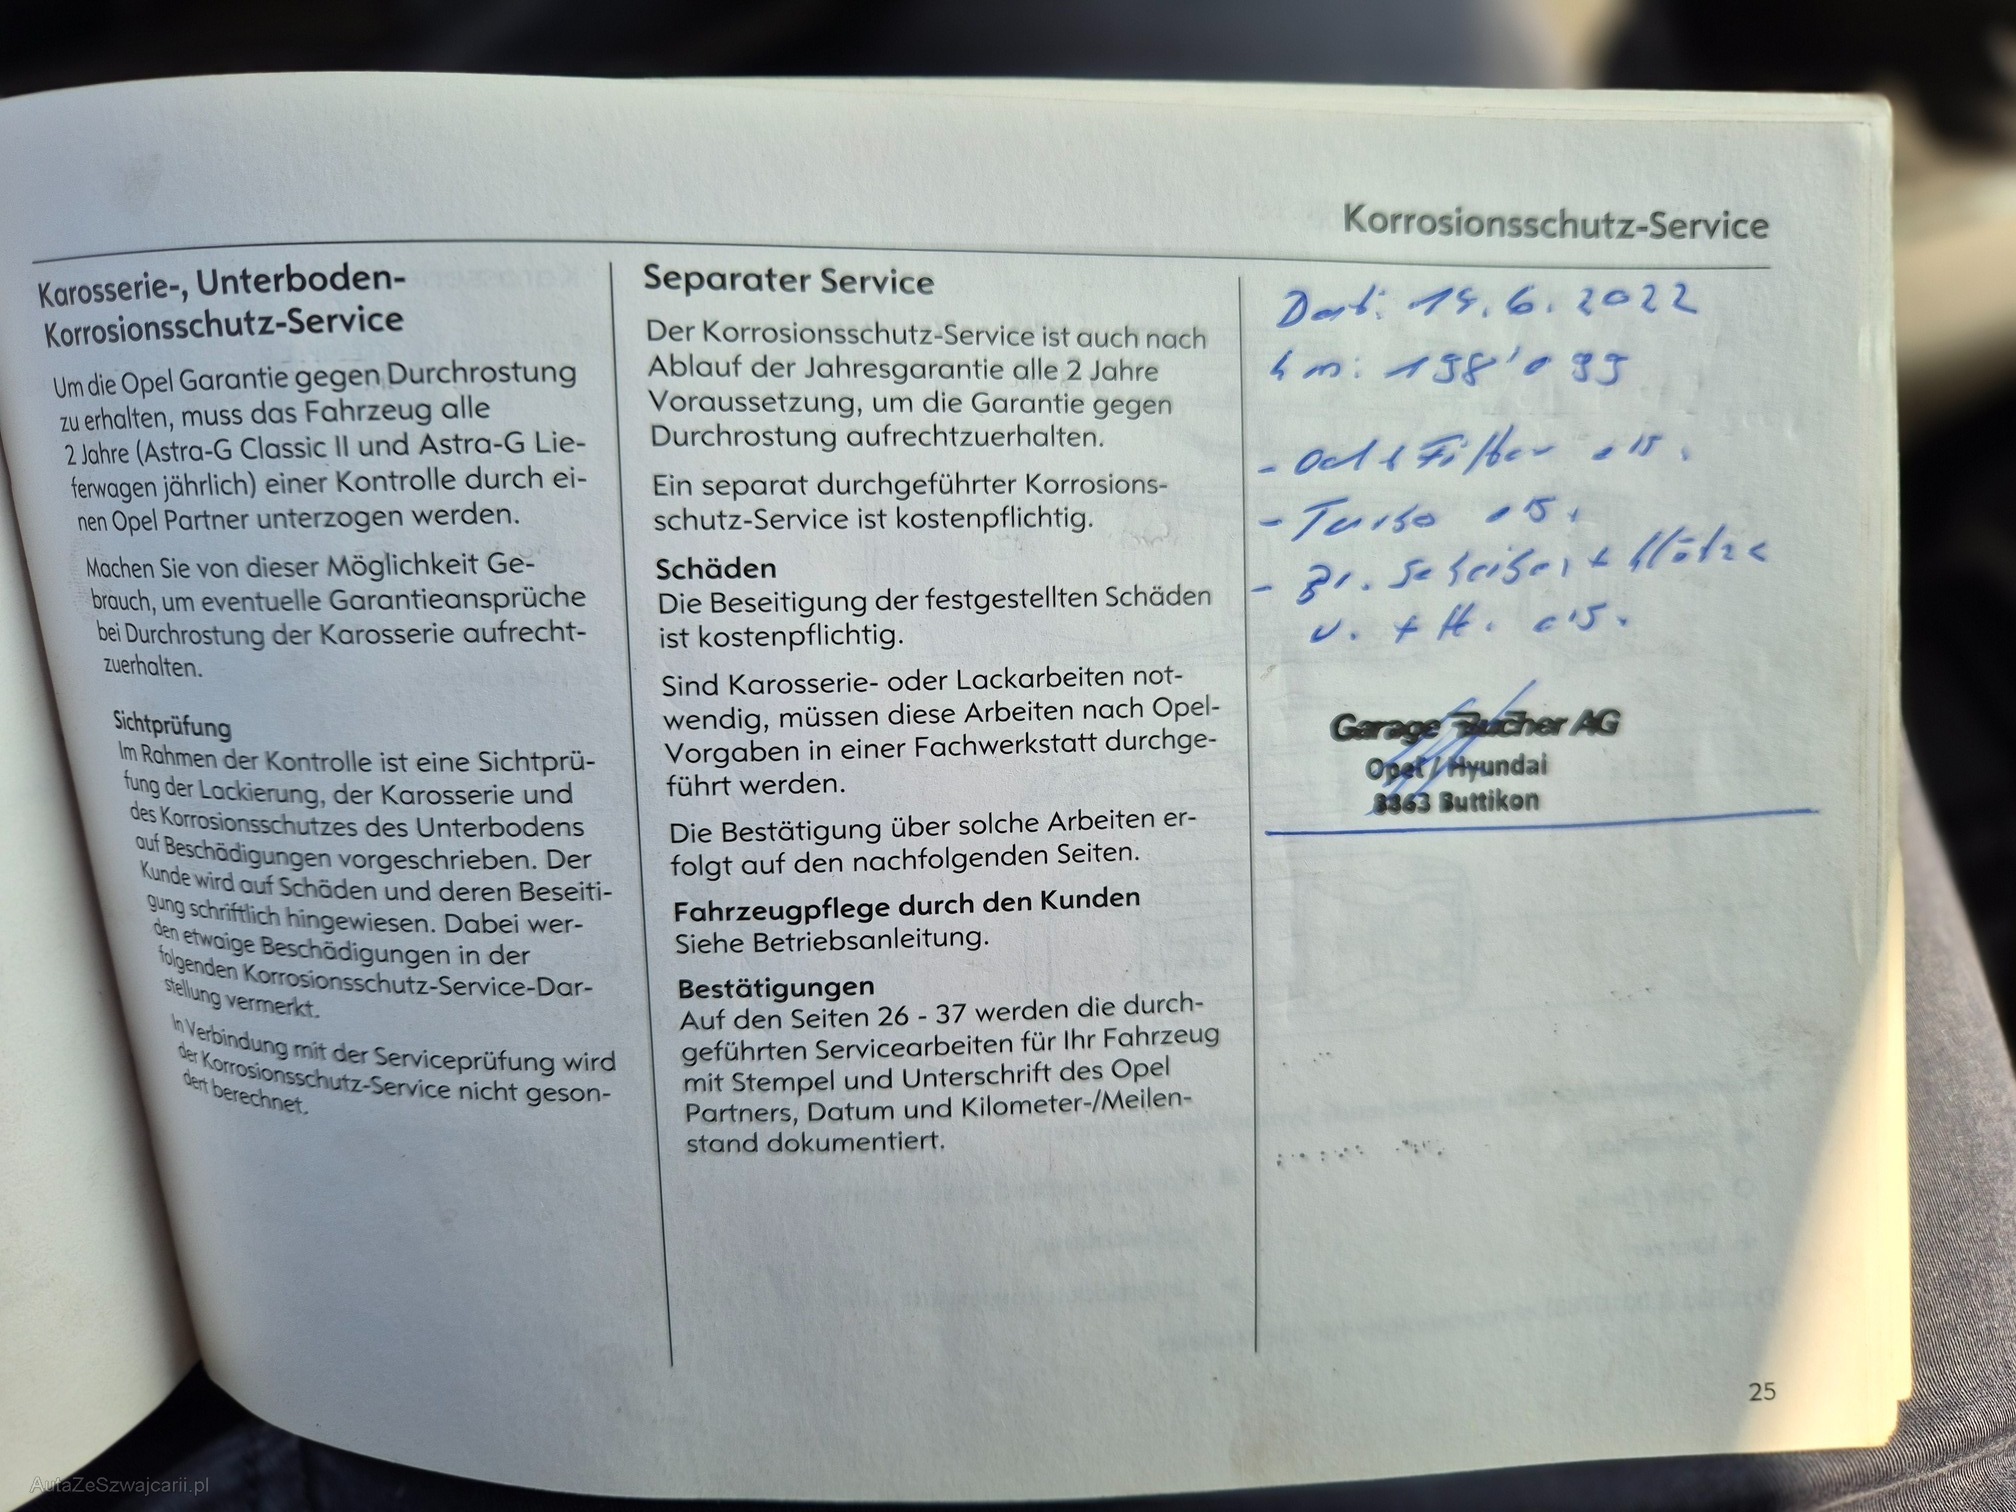 Korrosionsschutz-Service
Karosserie-, Unterboden-
Korrosionsschutz-Service
Um die Opel Garantie gegen Durchrostung
zu erhalten, muss das Fahrzeug alle
2 Jahre (Astra-G Classic II und Astra-G Lie-
ferwagen jährlich) einer Kontrolle durch ei-
nen Opel Partner unterzogen werden.
Machen Sie von dieser Möglichkeit Ge-
brauch, um eventuelle Garantieansprüche
bei Durchrostung der Karosserie aufrecht-
zuerhalten.
Sichtprüfung
Im Rahmen der Kontrolle ist eine Sichtprü-
fung der Lackierung, der Karosserie und
des Korrosionsschutzes des Unterbodens
auf Beschädigungen vorgeschrieben. Der
Kunde wird auf Schäden und deren Beseiti-
gung schriftlich hingewiesen. Dabei wer-
den etwaige Beschädigungen in der
folgenden Korrosionsschutz-Service-Dar-
stellung vermerkt.
In Verbindung mit der Serviceprüfung wird
der Korrosionsschutz-Service nicht geson-
dert berechnet.
Separater Service
Der Korrosionsschutz-Service ist auch nach
Ablauf der Jahresgarantie alle 2 Jahre
Voraussetzung, um die Garantie gegen
Durchrostung aufrechtzuerhalten.
Ein separat durchgeführter Korrosions-
schutz-Service ist kostenpflichtig.
Schäden
Die Beseitigung der festgestellten Schäden
ist kostenpflichtig.
Sind Karosserie- oder Lackarbeiten not-
wendig, müssen diese Arbeiten nach Opel-
Vorgaben in einer Fachwerkstatt durchge-
führt werden.
Die Bestätigung über solche Arbeiten er-
folgt auf den nachfolgenden Seiten.
Fahrzeugpflege durch den Kunden
Siehe Betriebsanleitung.
Bestätigungen
Auf den Seiten 26 - 37 werden die durch-
geführten Servicearbeiten für Ihr Fahrzeug
mit Stempel und Unterschrift des Opel
Partners, Datum und Kilometer-/Meilen-
stand dokumentiert.
Dat: 6.2022
km: 198'099
- Filter
- Turbo
- Br. Scheiben + Klötze
v. + H.
Garage Bucher AG
Opel / Hyundai
8863 Buttikon
25
AutaZeSzwajcarii.pl